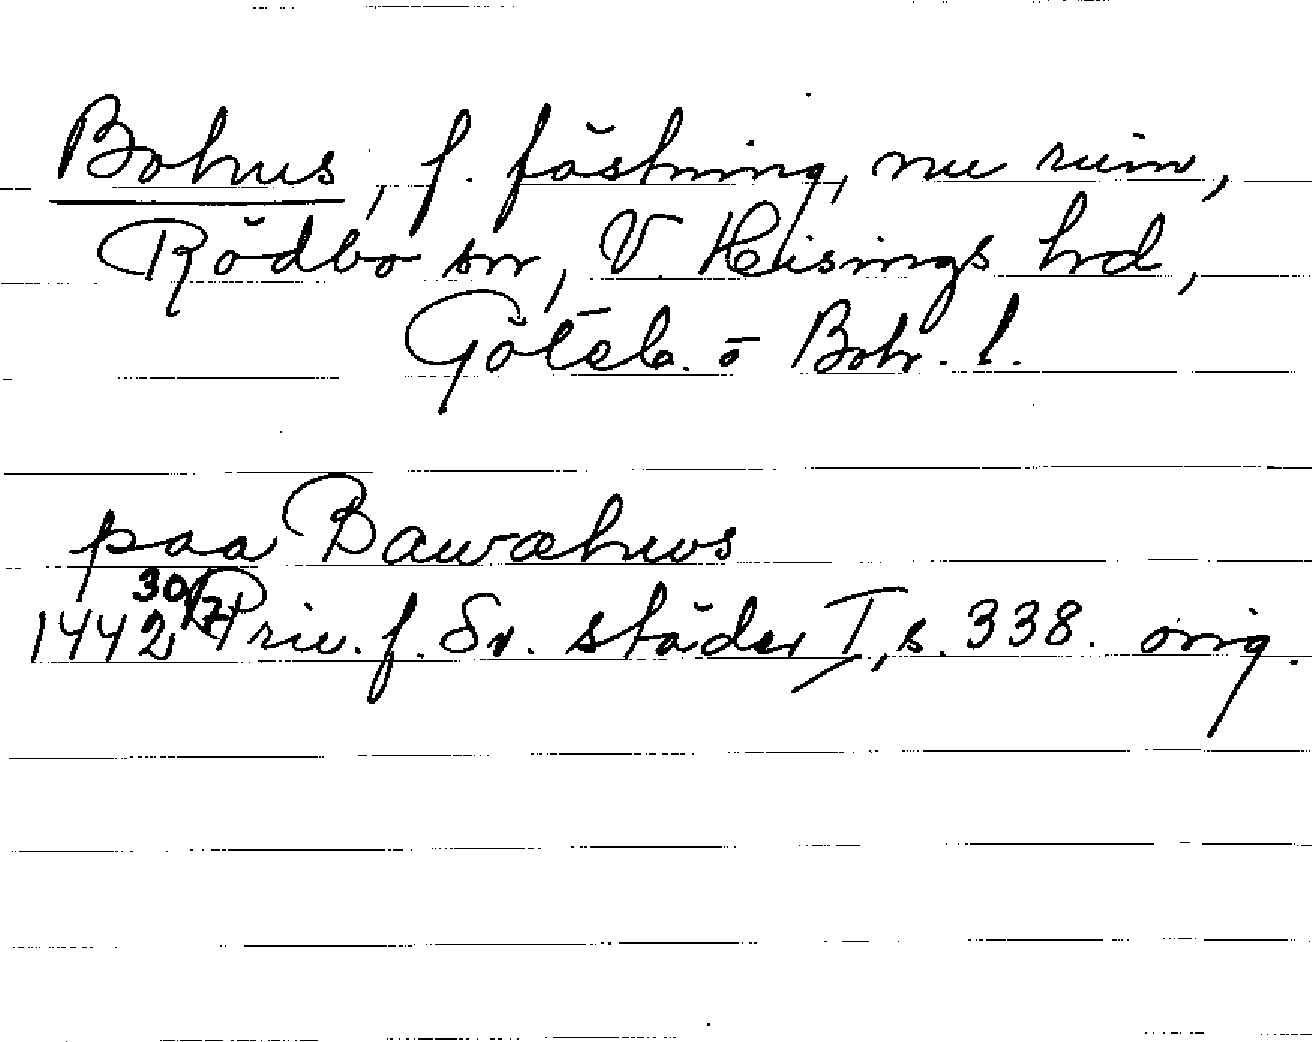 Bohus, f. fästning, nu ruin,
Rödbo sn, V. Hisings hrd,
Göteb. o Boh. l.
paa Bawæhws
1442 30/7 Priv. f. Sv. städer I, s. 338. orig.